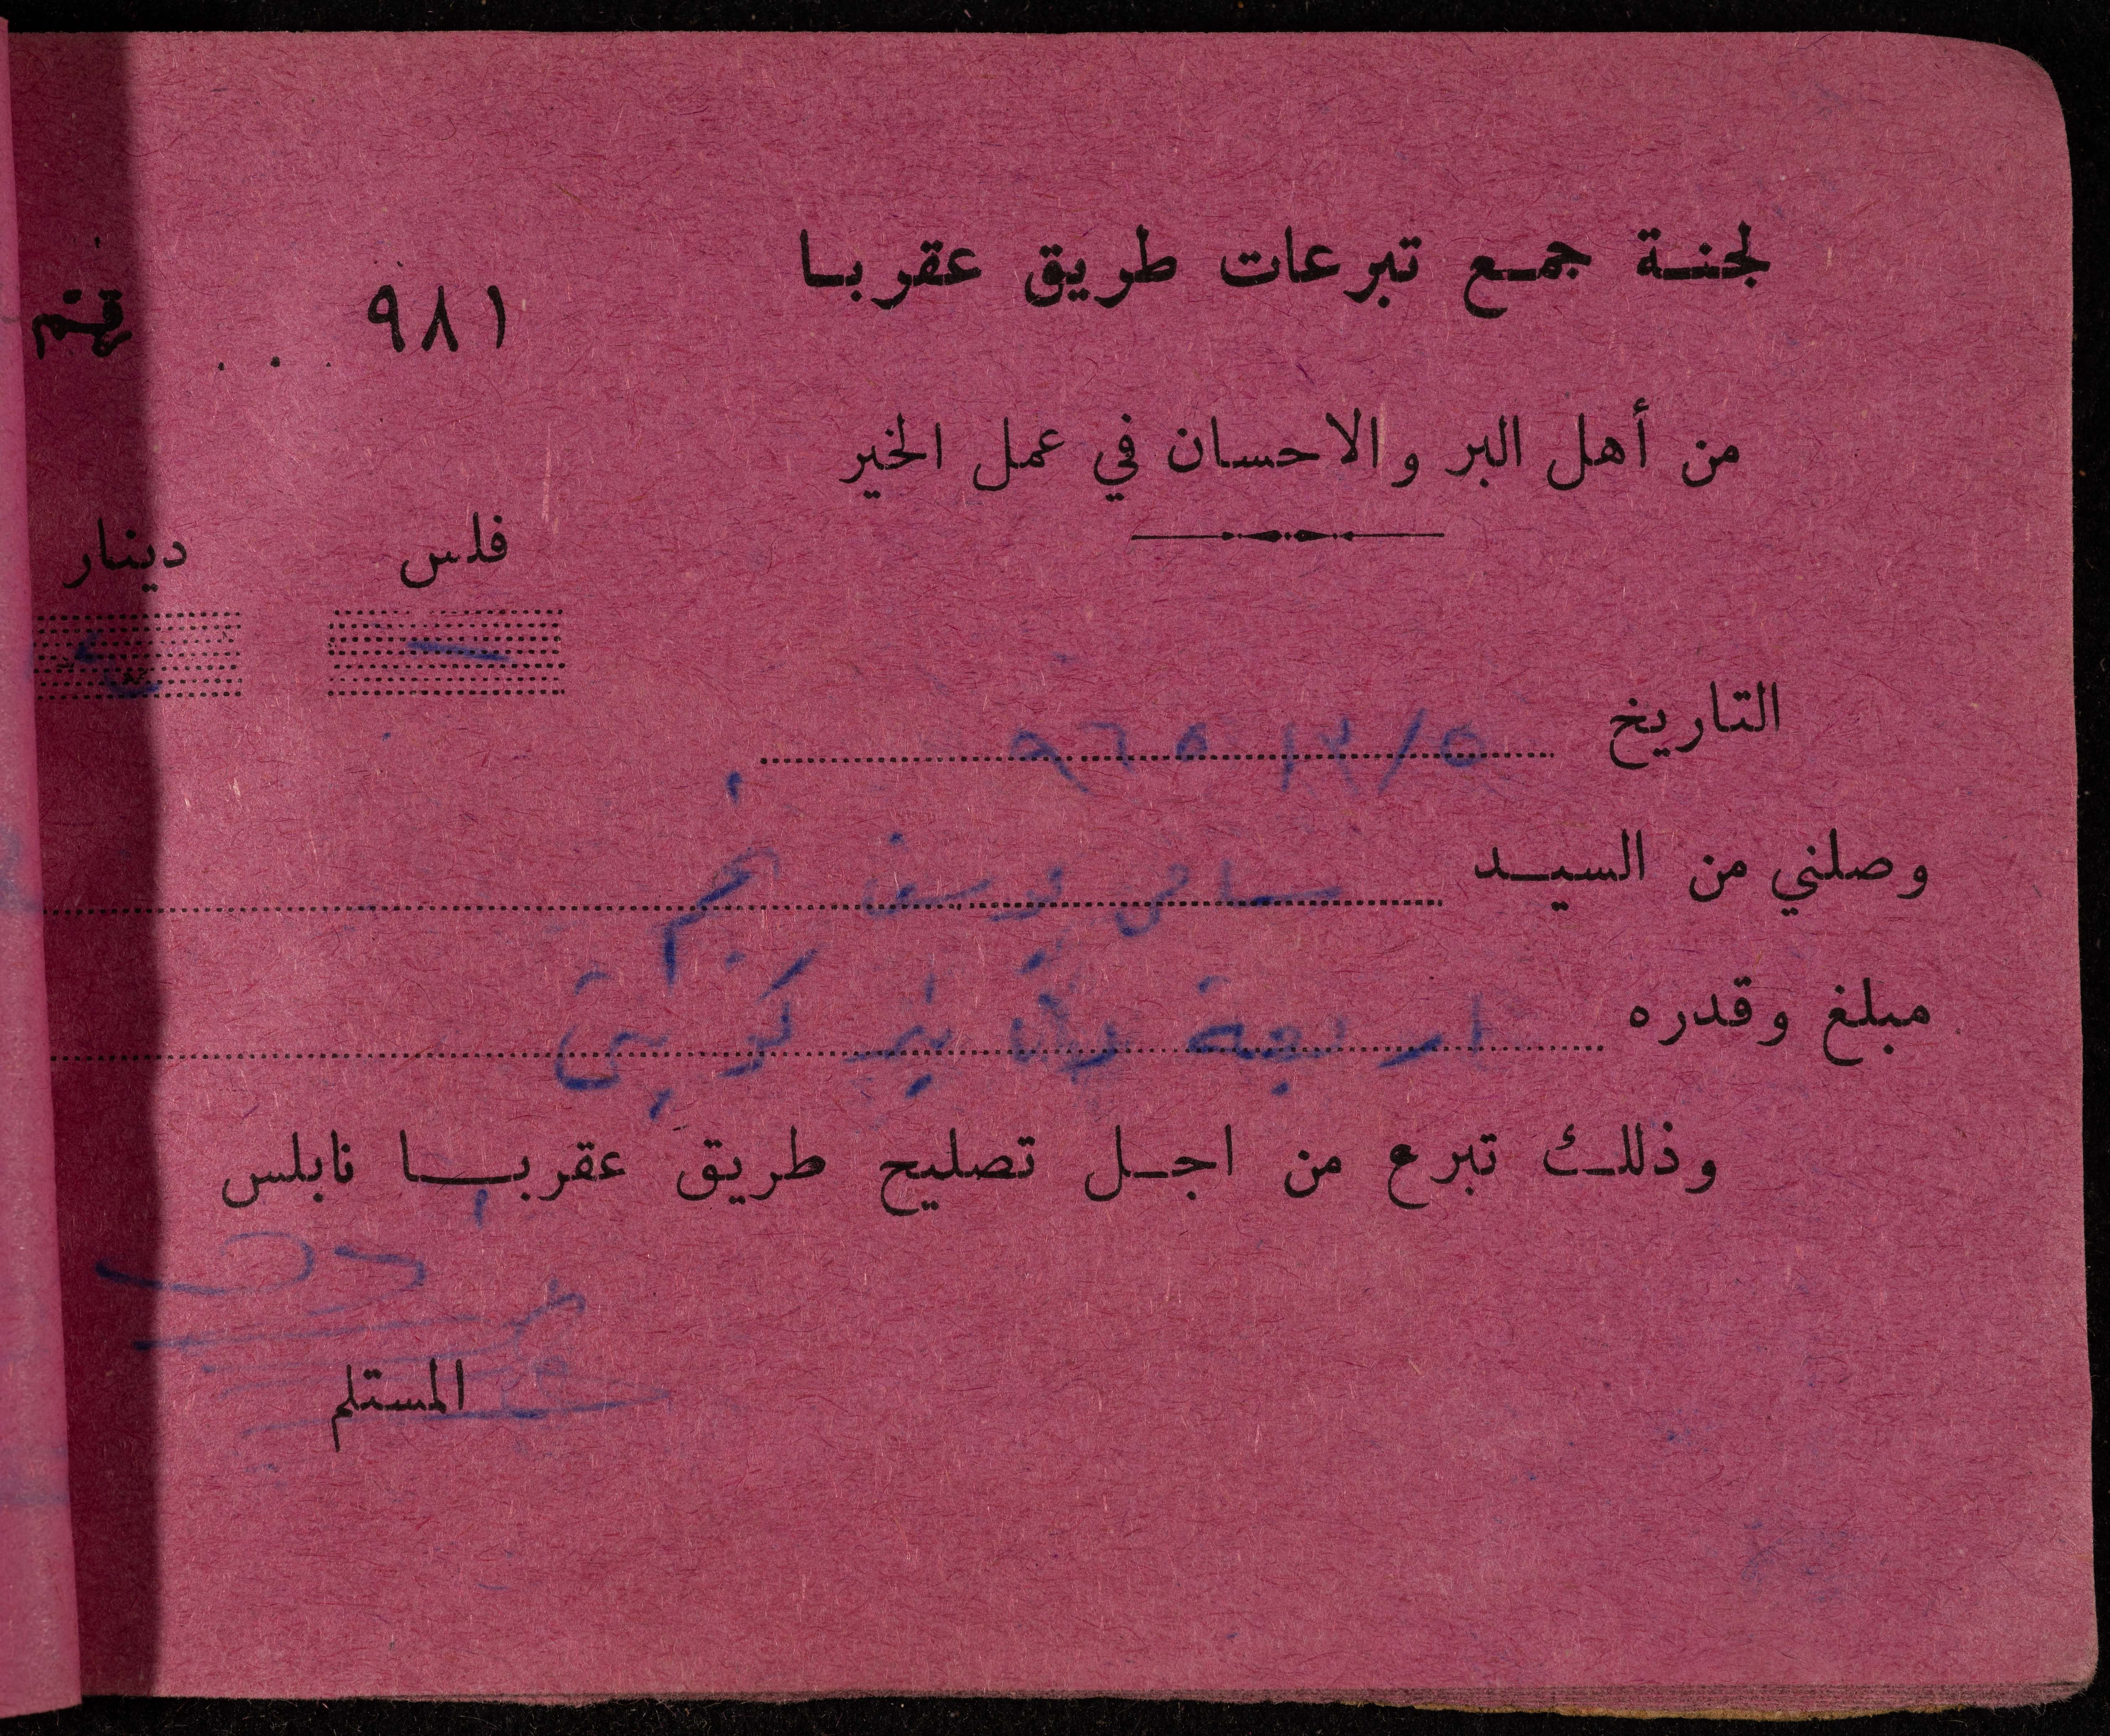 لجنة جمع تبرعات طريق عقربا
رقم ٩٨١
من أهل البر والاحسان في عمل الخير
فلس دينار
التاريخ ٥/١٢ ٩٦٥
وصلني من السيد سامي يوسف نجم
مبلغ وقدره اربعة دنانير كويتي
وذلك تبرع من اجل تصليح طريق عقربا نابلس
المستلم